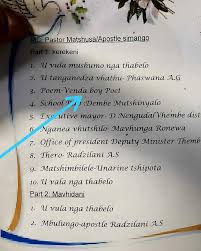 MC: Pastor Matshusa/Apostle simango
Part 1: kerekeni
1. U vula mushumo nga thabelo
2. U tanganedza vhathu- Phaswana A.G
3. Poem-Venda boy Poet
4. School Dembe Mutshinyalo
5. Executive mayor- D Nengudza Vhembe dist
6. Nganea vhutshilo- Mavhunga Ronewa
7. Office of president Deputy Minister Themb
8. Thero- Radzilani A.S
9. Matshimbilele-Unarine Tshipota
10. U vala nga thabelo
Part 2: Mavhidani
1. U vula nga thabelo
2. Mbulungo-apostle Radzilani A.S